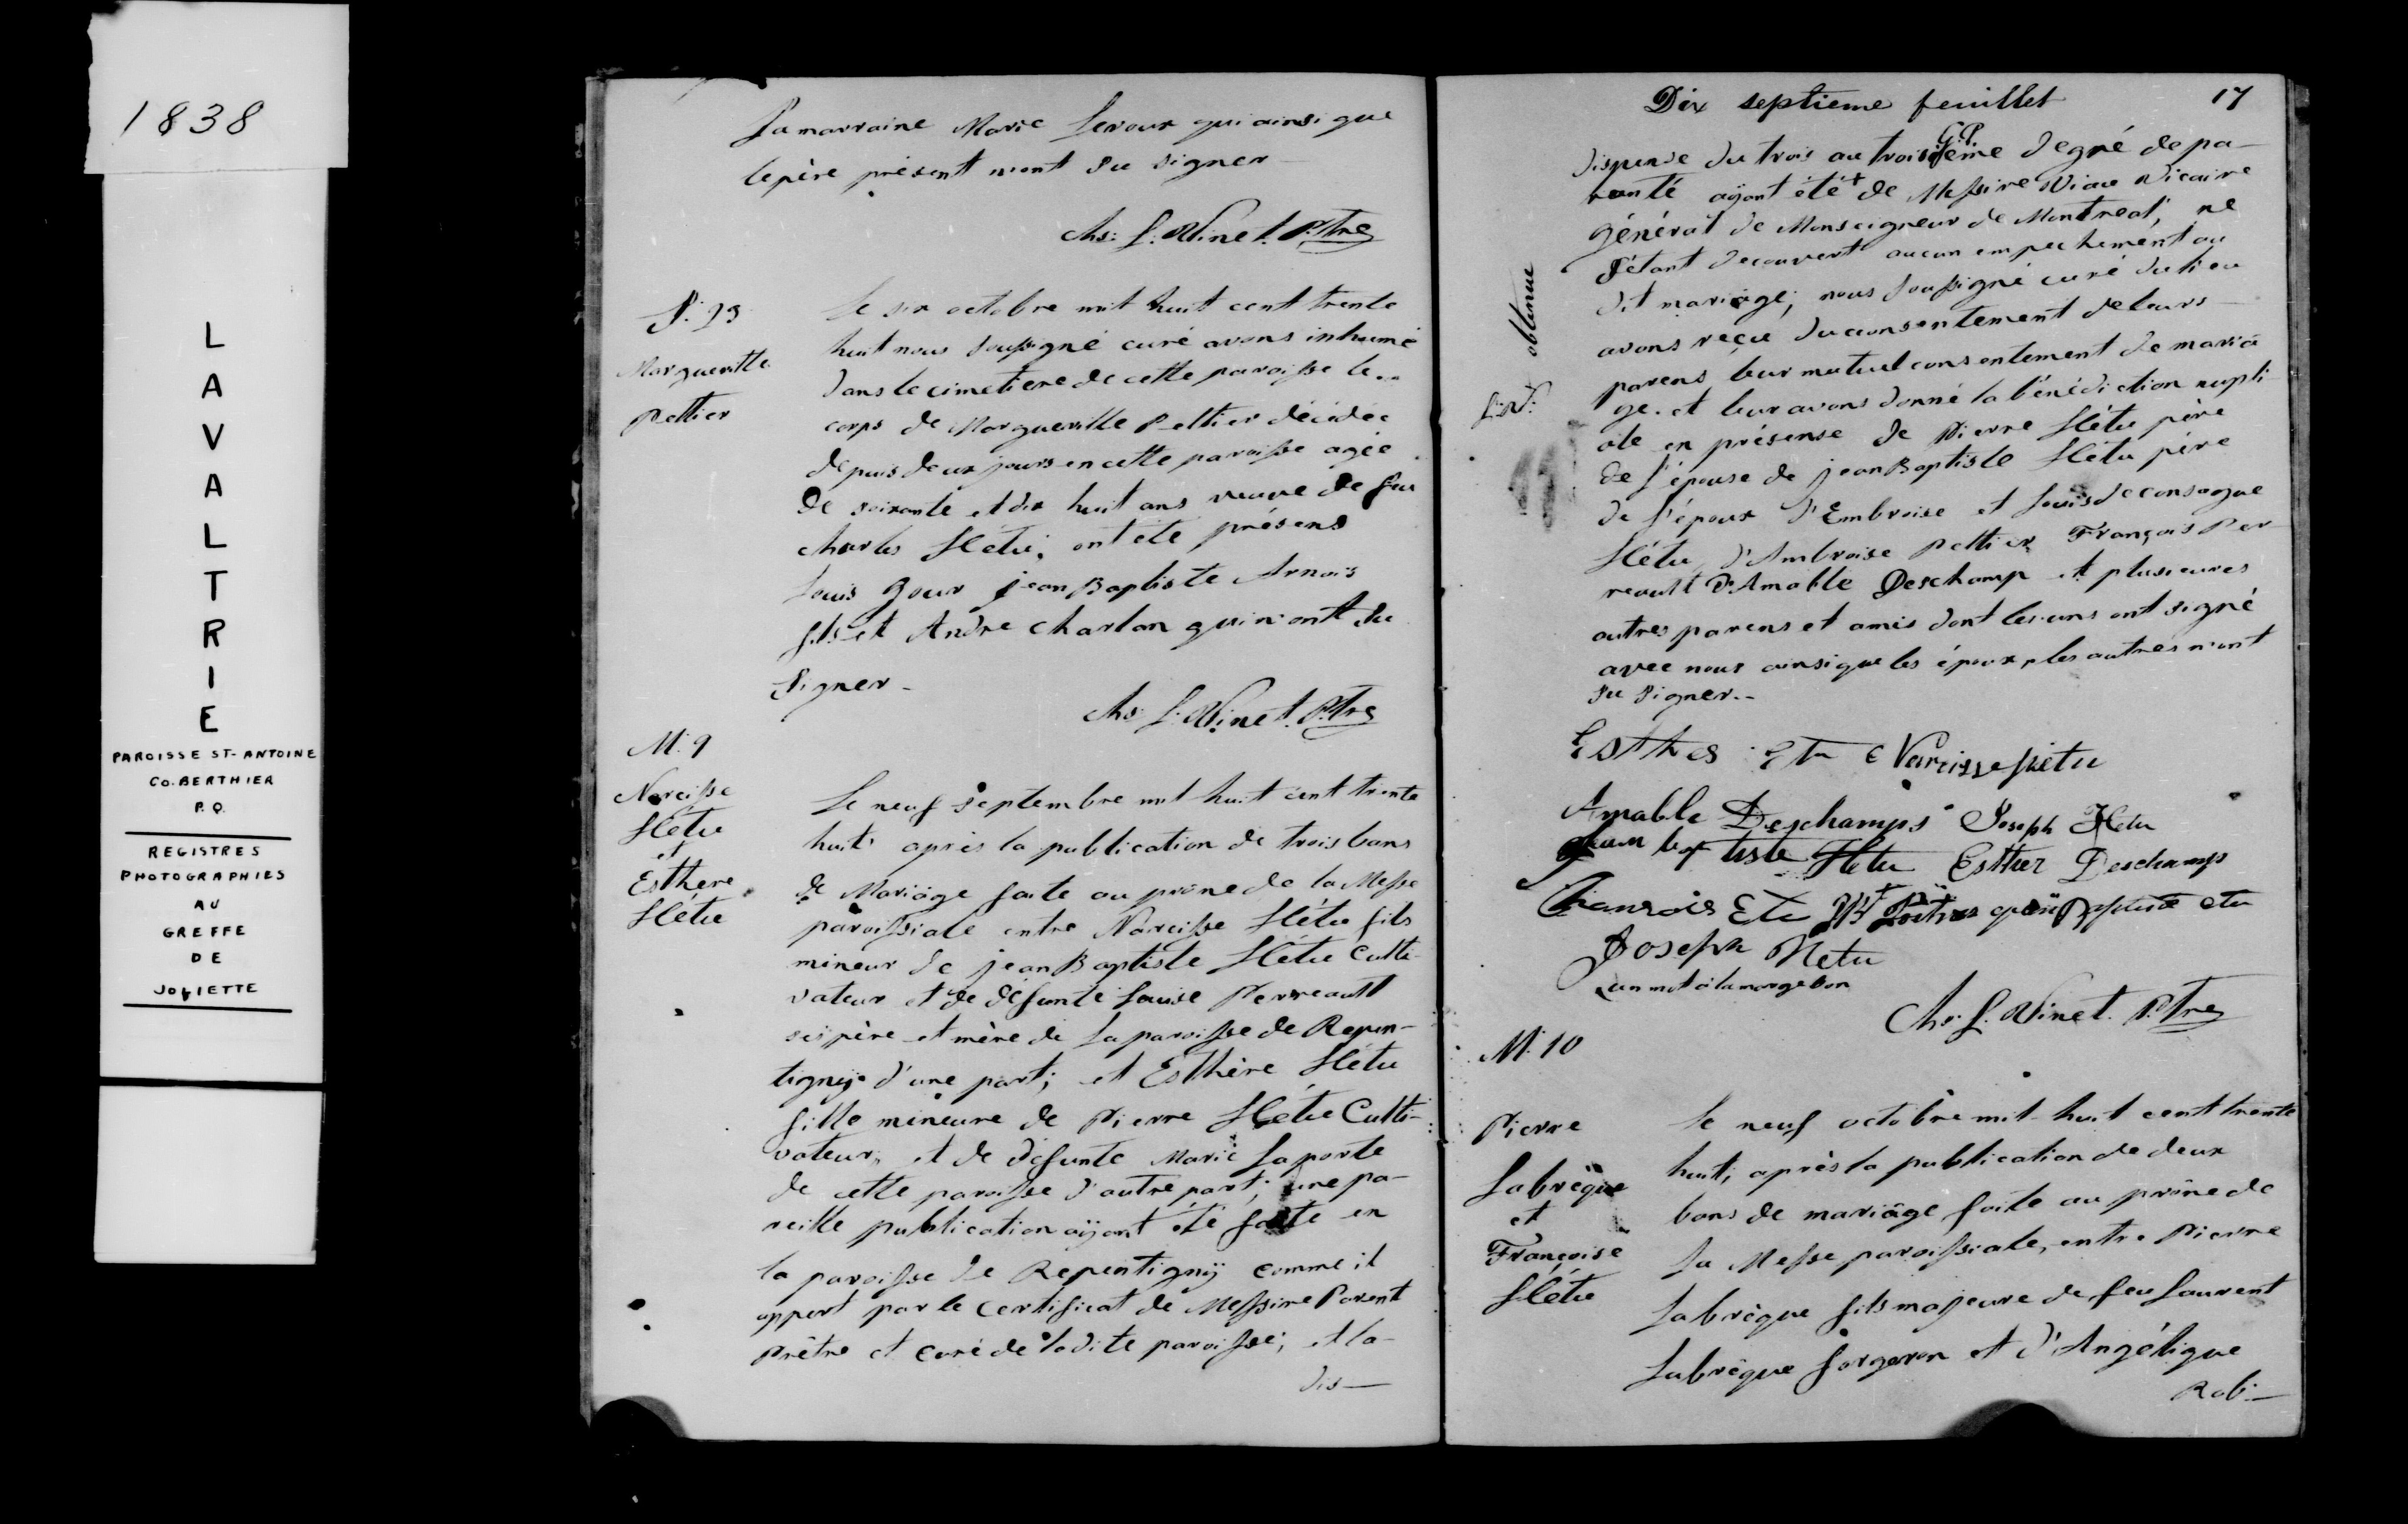 1838
L
A
V
A
L
T
R
I
E
PAROISSE ST-ANTOINE
CO. BERTHIER
P.Q.
REGISTRES
PHOTOGRAPHIES
AU
GREFFE
DE
JOLIETTE
La marraine Marie Leroux qui ainsi que
le père présent n'ont su signer
Chs: L: Vinet. Ptre
S. 23
Margueritte
Peltier
Le six octobre mil huit cent trente
huit nous soussigné curé avons inhumé
dans le cimetiere de cette paroisse le
corps de Margueritte Peltier décédée
depuis deux jours en cette paroisse agée
de soixante et dix huit ans veuve de feu
Charles Hétu; ont été présens
Louis Jean Baptiste Arnois
fils et Andre Charlan qui n'ont su
signer
Chs L: Vinet. Ptre
M. 9
Narcisse
Hétu
et
Esthere
Hétu
Le neuf septembre mil huit cent trente
huit après la publication de trois bans
de Mariâge faite au prône de la Messe
paroissiale entre Narcisse Hétu fils
mineur de jean Baptiste Hétu Culti-
vateur et de défunte Louise Perreault
ses père et mère de la paroisse de Repen-
tigny d'une part; et Esthère Hétu
fille mineure de Pierre Hétu Culti-
vateur, et de défunte Marie Laporte
de cette paroisse d'autre part; une pa-
reille publication ayant été faite en
la paroisse de Repentigny comme il
appert par le Certificat de Messire Parent
Prêtre et Curé de la dite paroisse; et la
dis-
Dix septieme feuillet 17
G.P.
dispense du trois au troisième degré de pa-
renté ayant été + de Messire Viau Vicaire
Général de Monseigneur de Montreal, ne
s'étant decouvert aucun empechement au
dit mariâge; nous soussigné curé du lieu
avons reçu du consentement de leurs
parens leur mutuel consentement de mariâ
ge. et leur avons donné la bénédiction nupti
ale en présense de Pierre Hétu père
de l'épouse de jean Baptiste Hétu père
de l'époux d'Embroise et Louis de consague
Hétu, d'Ambroise Peltier François Per
reault d'Amable Deschamp et plusieures
autres parens et amis dont les uns ont signé
avec nous ainsi que les époux, les autres n'ont
su signer.
obtenue
Esthes Etu Narcisse hétu
Amable Deschamps Joseph Hetu
Hetu Esther Deschamp
Etu etu
Joseph Hetu
un mot à la marge bon
Chs. L. Vinet. Ptre
M. 10
Pierre
Labrèque
et
Françoise
Hétu
Le neuf octobre mil huit cent trente
huit, après la publication de deux
bans de mariâge faite au prône de
la Messe paroissiale, entre Pierre
Labrèque fils majeure de feu Laurent
Labrèque forgeron et d'Angélique
Robi-